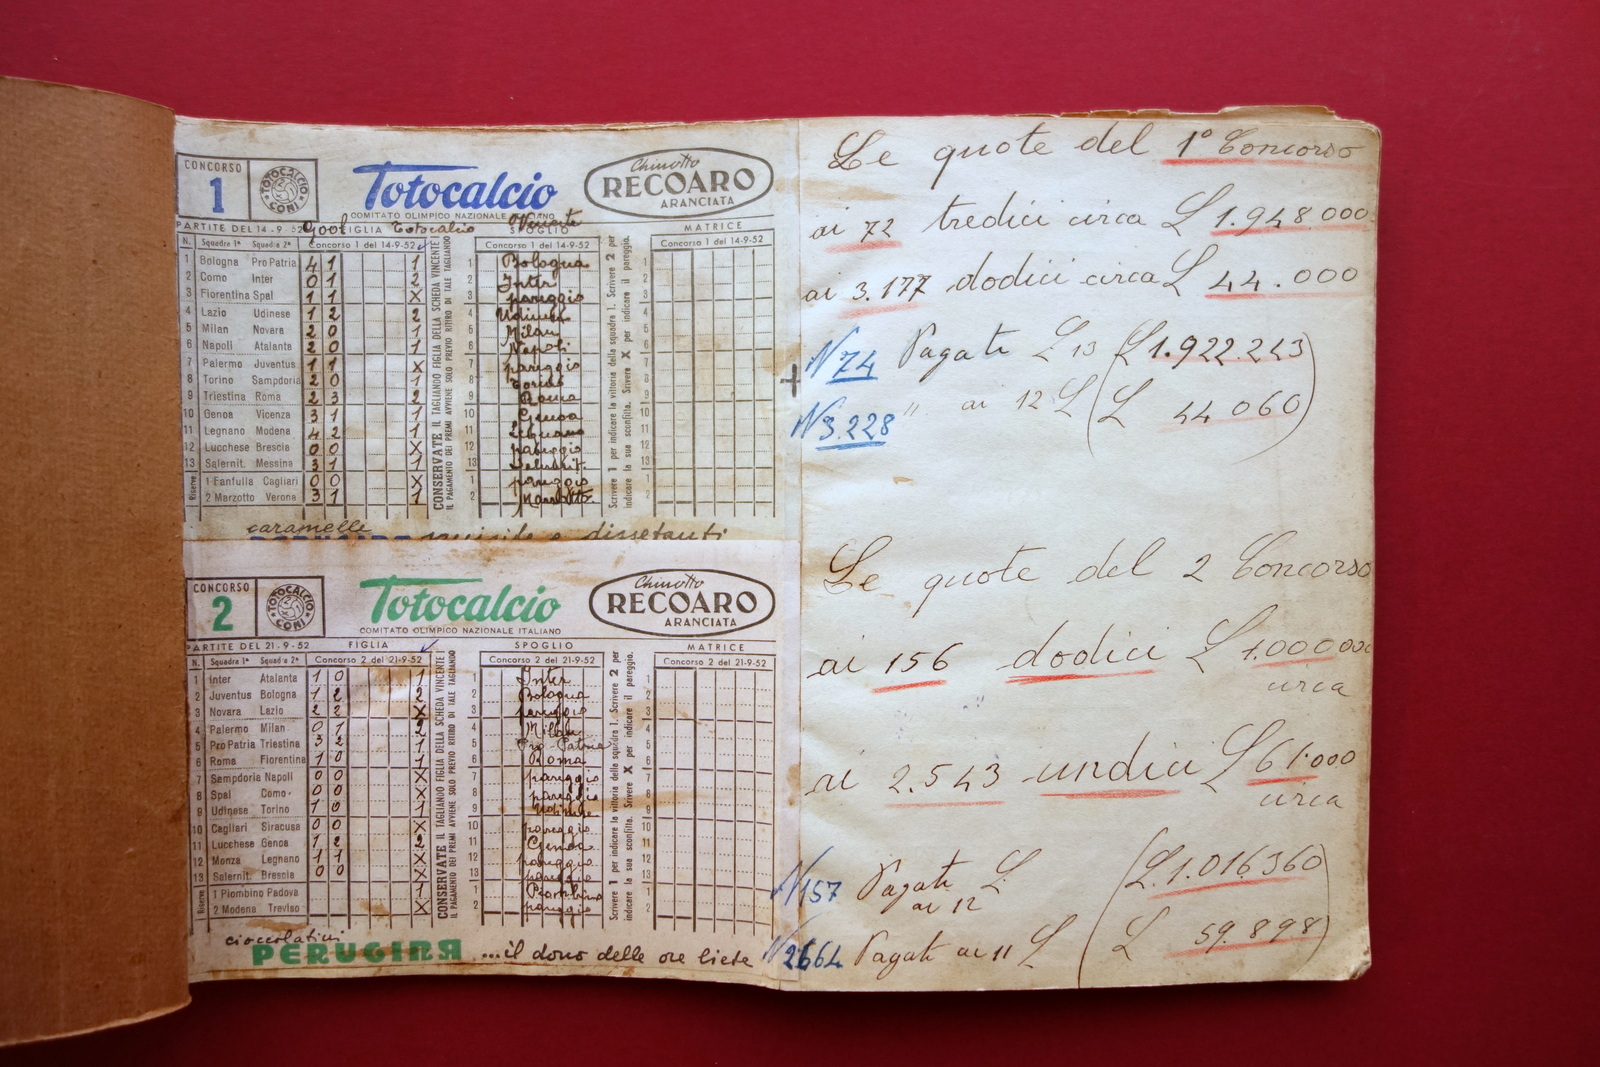 CONCORSO
1
TOTOCALCIO CONI
Totocalcio
COMITATO OLIMPICO NAZIONALE ITALIANO
Chinotto
RECOARO
ARANCIATA
PARTITE DEL 14-9-52 Gool FIGLIA Totocalcio SPOGLIO MATRICE
N. Squadra 1ª Squadra 2ª Concorso 1 del 14-9-52 Concorso 1 del 14-9-52 Concorso 1 del 14-9-52
1 Bologna Pro Patria 4 1 1 1 Bologna 1
2 Como Inter 0 1 2 2 Inter 2
3 Fiorentina Spal 1 1 X 3 pareggio 3
4 Lazio Udinese 1 2 2 4 Udinese 4
5 Milan Novara 2 0 1 5 Milan 5
6 Napoli Atalanta 2 0 1 6 Napoli 6
7 Palermo Juventus 1 1 X 7 pareggio 7
8 Torino Sampdoria 2 0 1 8 Torino 8
9 Triestina Roma 2 3 2 9 Roma 9
10 Genoa Vicenza 3 1 1 10 Genoa 10
11 Legnano Modena 4 2 1 11 Legnano 11
12 Lucchese Brescia 0 0 X 12 pareggio 12
13 Salernit. Messina 3 1 1 13 Salernit. 13
Riserve
1 Fanfulla Cagliari 0 0 X 1 pareggio 1
2 Marzotto Verona 3 1 1 2 Marzotto 2
CONSERVATE IL TAGLIANDO FIGLIA DELLA SCHEDA VINCENTE
IL PAGAMENTO DEI PREMI AVVIENE SOLO PREVIO RITIRO DI TALE TAGLIANDO
Scrivere 1 per indicare la vittoria della squadra 1. Scrivere 2 per
indicare la sua sconfitta. Srivere X per indicare il pareggio.
caramelle
PERUGINA squisite e dissetanti
CONCORSO
2
TOTOCALCIO CONI
Totocalcio
COMITATO OLIMPICO NAZIONALE ITALIANO
Chinotto
RECOARO
ARANCIATA
PARTITE DEL 21-9-52 FIGLIA SPOGLIO MATRICE
N. Squadra 1ª Squadra 2ª Concorso 2 del 21-9-52 Concorso 2 del 21-9-52 Concorso 2 del 21-9-52
1 Inter Atalanta 1 0 1 1 Inter 1
2 Juventus Bologna 1 2 2 2 Bologna 2
3 Novara Lazio 2 2 X 3 pareggio 3
4 Palermo Milan 0 1 2 4 Milan 4
5 Pro Patria Triestina 3 2 1 5 Pro-Patria 5
6 Roma Fiorentina 1 0 1 6 Roma 6
7 Sampdoria Napoli 0 0 X 7 pareggio 7
8 Spal Como 0 0 X 8 pareggio 8
9 Udinese Torino 1 0 1 9 Udinese 9
10 Cagliari Siracusa 0 0 X 10 pareggio 10
11 Lucchese Genoa 1 2 2 11 Genoa 11
12 Monza Legnano 1 1 X 12 pareggio 12
13 Salernit. Brescia 0 0 X 13 pareggio 13
Riserve
1 Piombino Padova 1 1 Piombino 1
2 Modena Treviso X 2 pareggio 2
CONSERVATE IL TAGLIANDO FIGLIA DELLA SCHEDA VINCENTE
IL PAGAMENTO DEI PREMI AVVIENE SOLO PREVIO RITIRO DI TALE TAGLIANDO
Scrivere 1 per indicare la vittoria della squadra 1. Scrivere 2 per
indicare la sua sconfitta. Srivere X per indicare il pareggio.
cioccolatini
PERUGINA ...il dono delle ore liete
Le quote del 1° Concorso
ai 72 tredici circa £ 1.948.000
ai 3.177 dodici circa £ 44.000
N 74 Pagati £ 13 (£1.922.223
N 3.228 " ai 12 £ (£ 44 060)
Le quote del 2 Concorso
ai 156 dodici £ 1.000 000
circa
ai 2.543 undici £ 61.000
circa
N 157 Pagati £ (£.1.016360
ai 12
N 2664 Pagati ai 11 £ (£ 59.898)